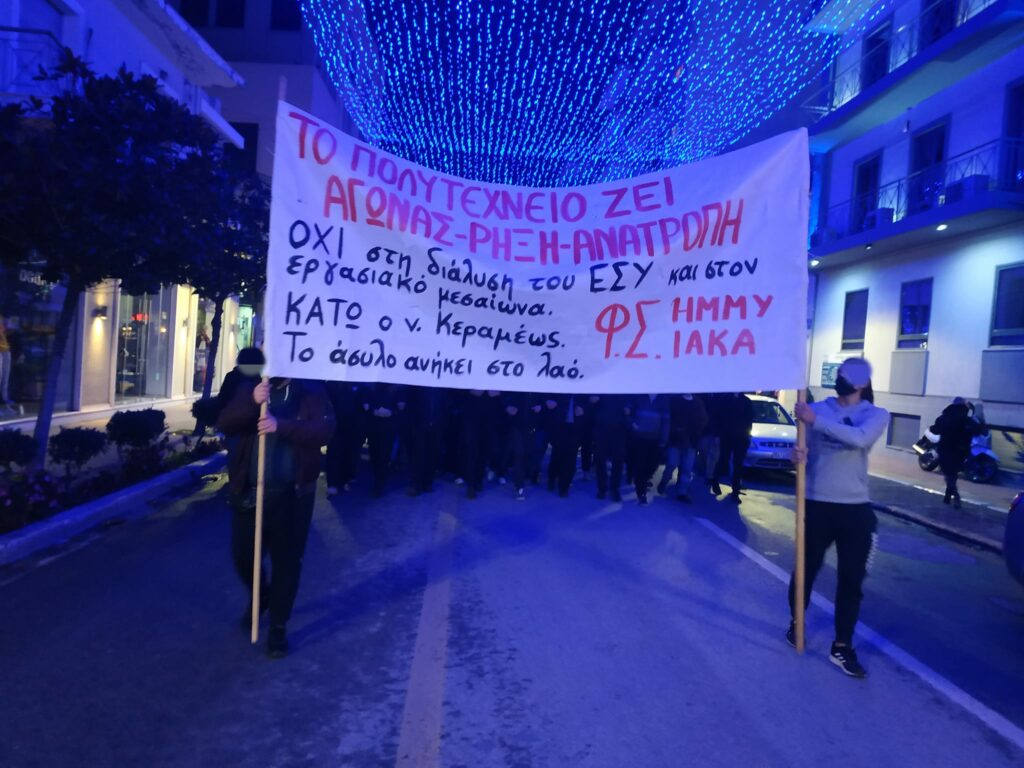 ΤΟ ΠΟΛΥΤΕΧΝΕΙΟ ΖΕΙ
ΑΓΩΝΑΣ-ΡΗΞΗ-ΑΝΑΤΡΟΠΗ
ΟΧΙ στη διάλυση του ΕΣΥ και στον
εργασιακό μεσαίωνα.
ΚΑΤΩ ο ν. Κεραμέως.
Το άσυλο ανήκει στο λαό.
Φ.Σ. ΗΜΜΥ
ΙΑΚΑ